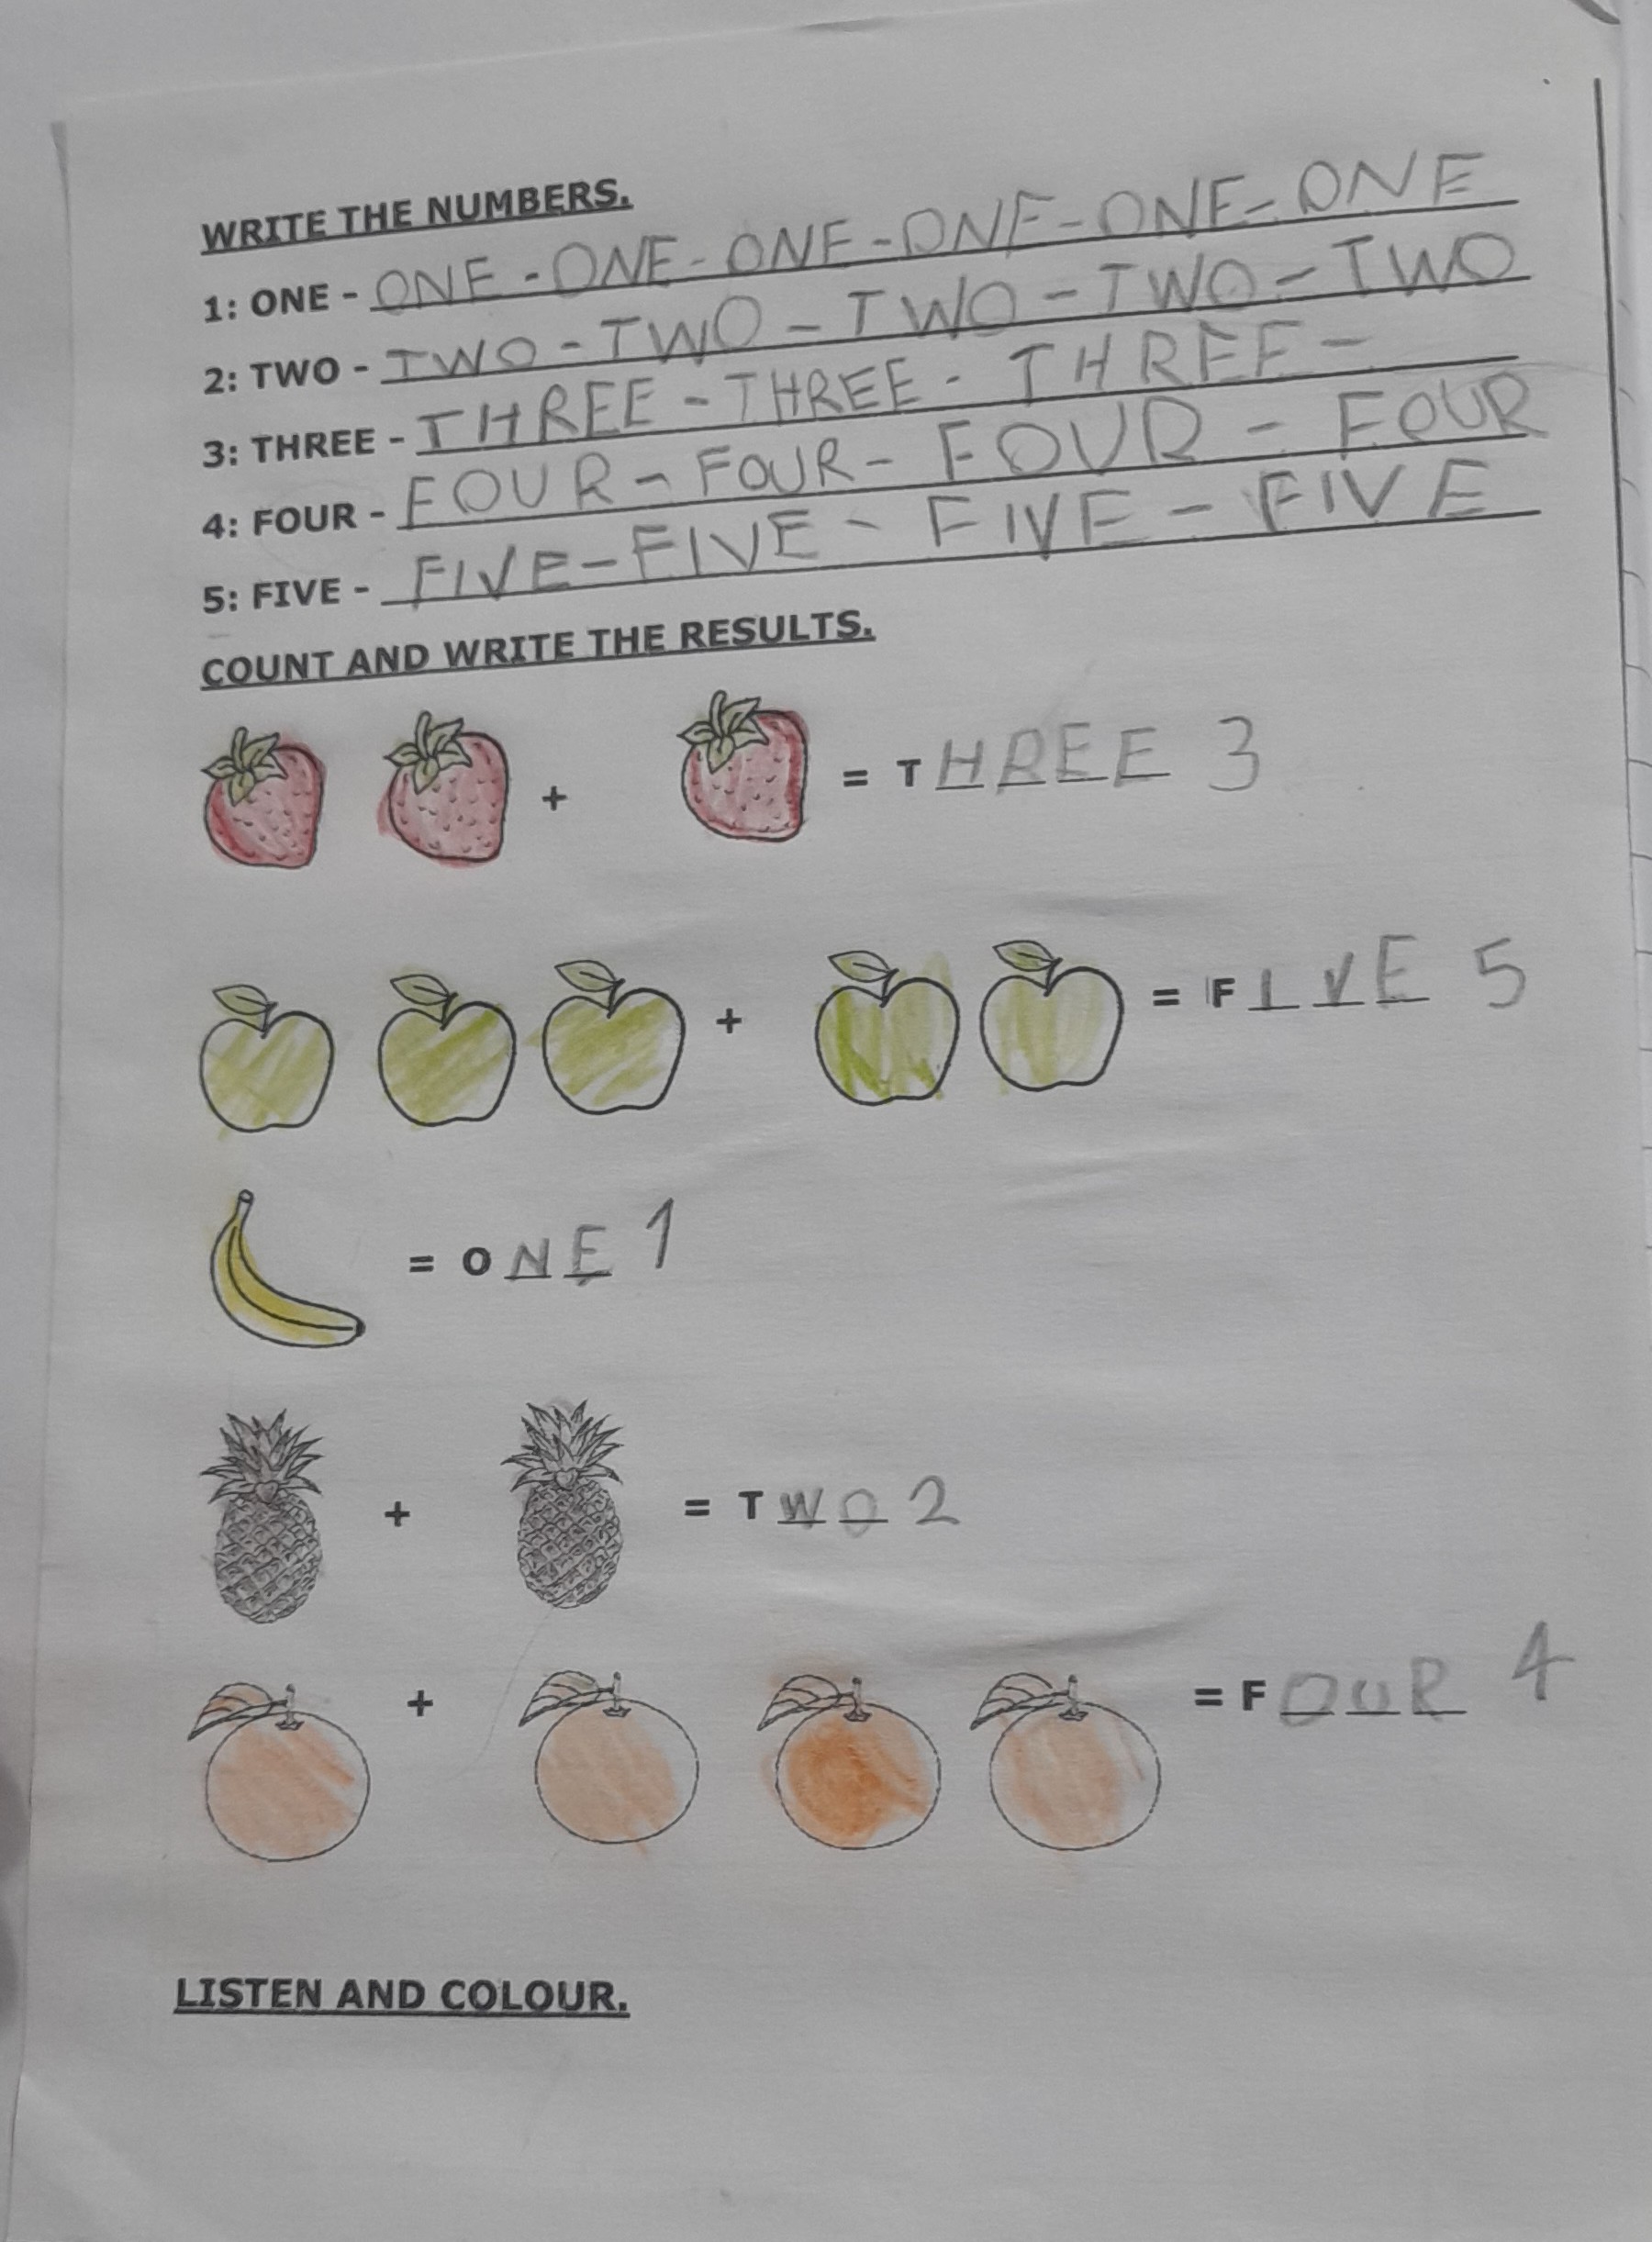 WRITE THE NUMBERS.
1: ONE - ONE - ONE - ONE - ONE - ONE - ONE
2: TWO - TWO - TWO - TWO - TWO - TWO
3: THREE - THREE - THREE - THREE -
4: FOUR - FOUR - FOUR - FOUR - FOUR
5: FIVE - FIVE - FIVE - FIVE - FIVE
COUNT AND WRITE THE RESULTS.
+ = THREE 3
+ = FIVE 5
= ONE 1
+ = TWO 2
+ = FOUR 4
LISTEN AND COLOUR.